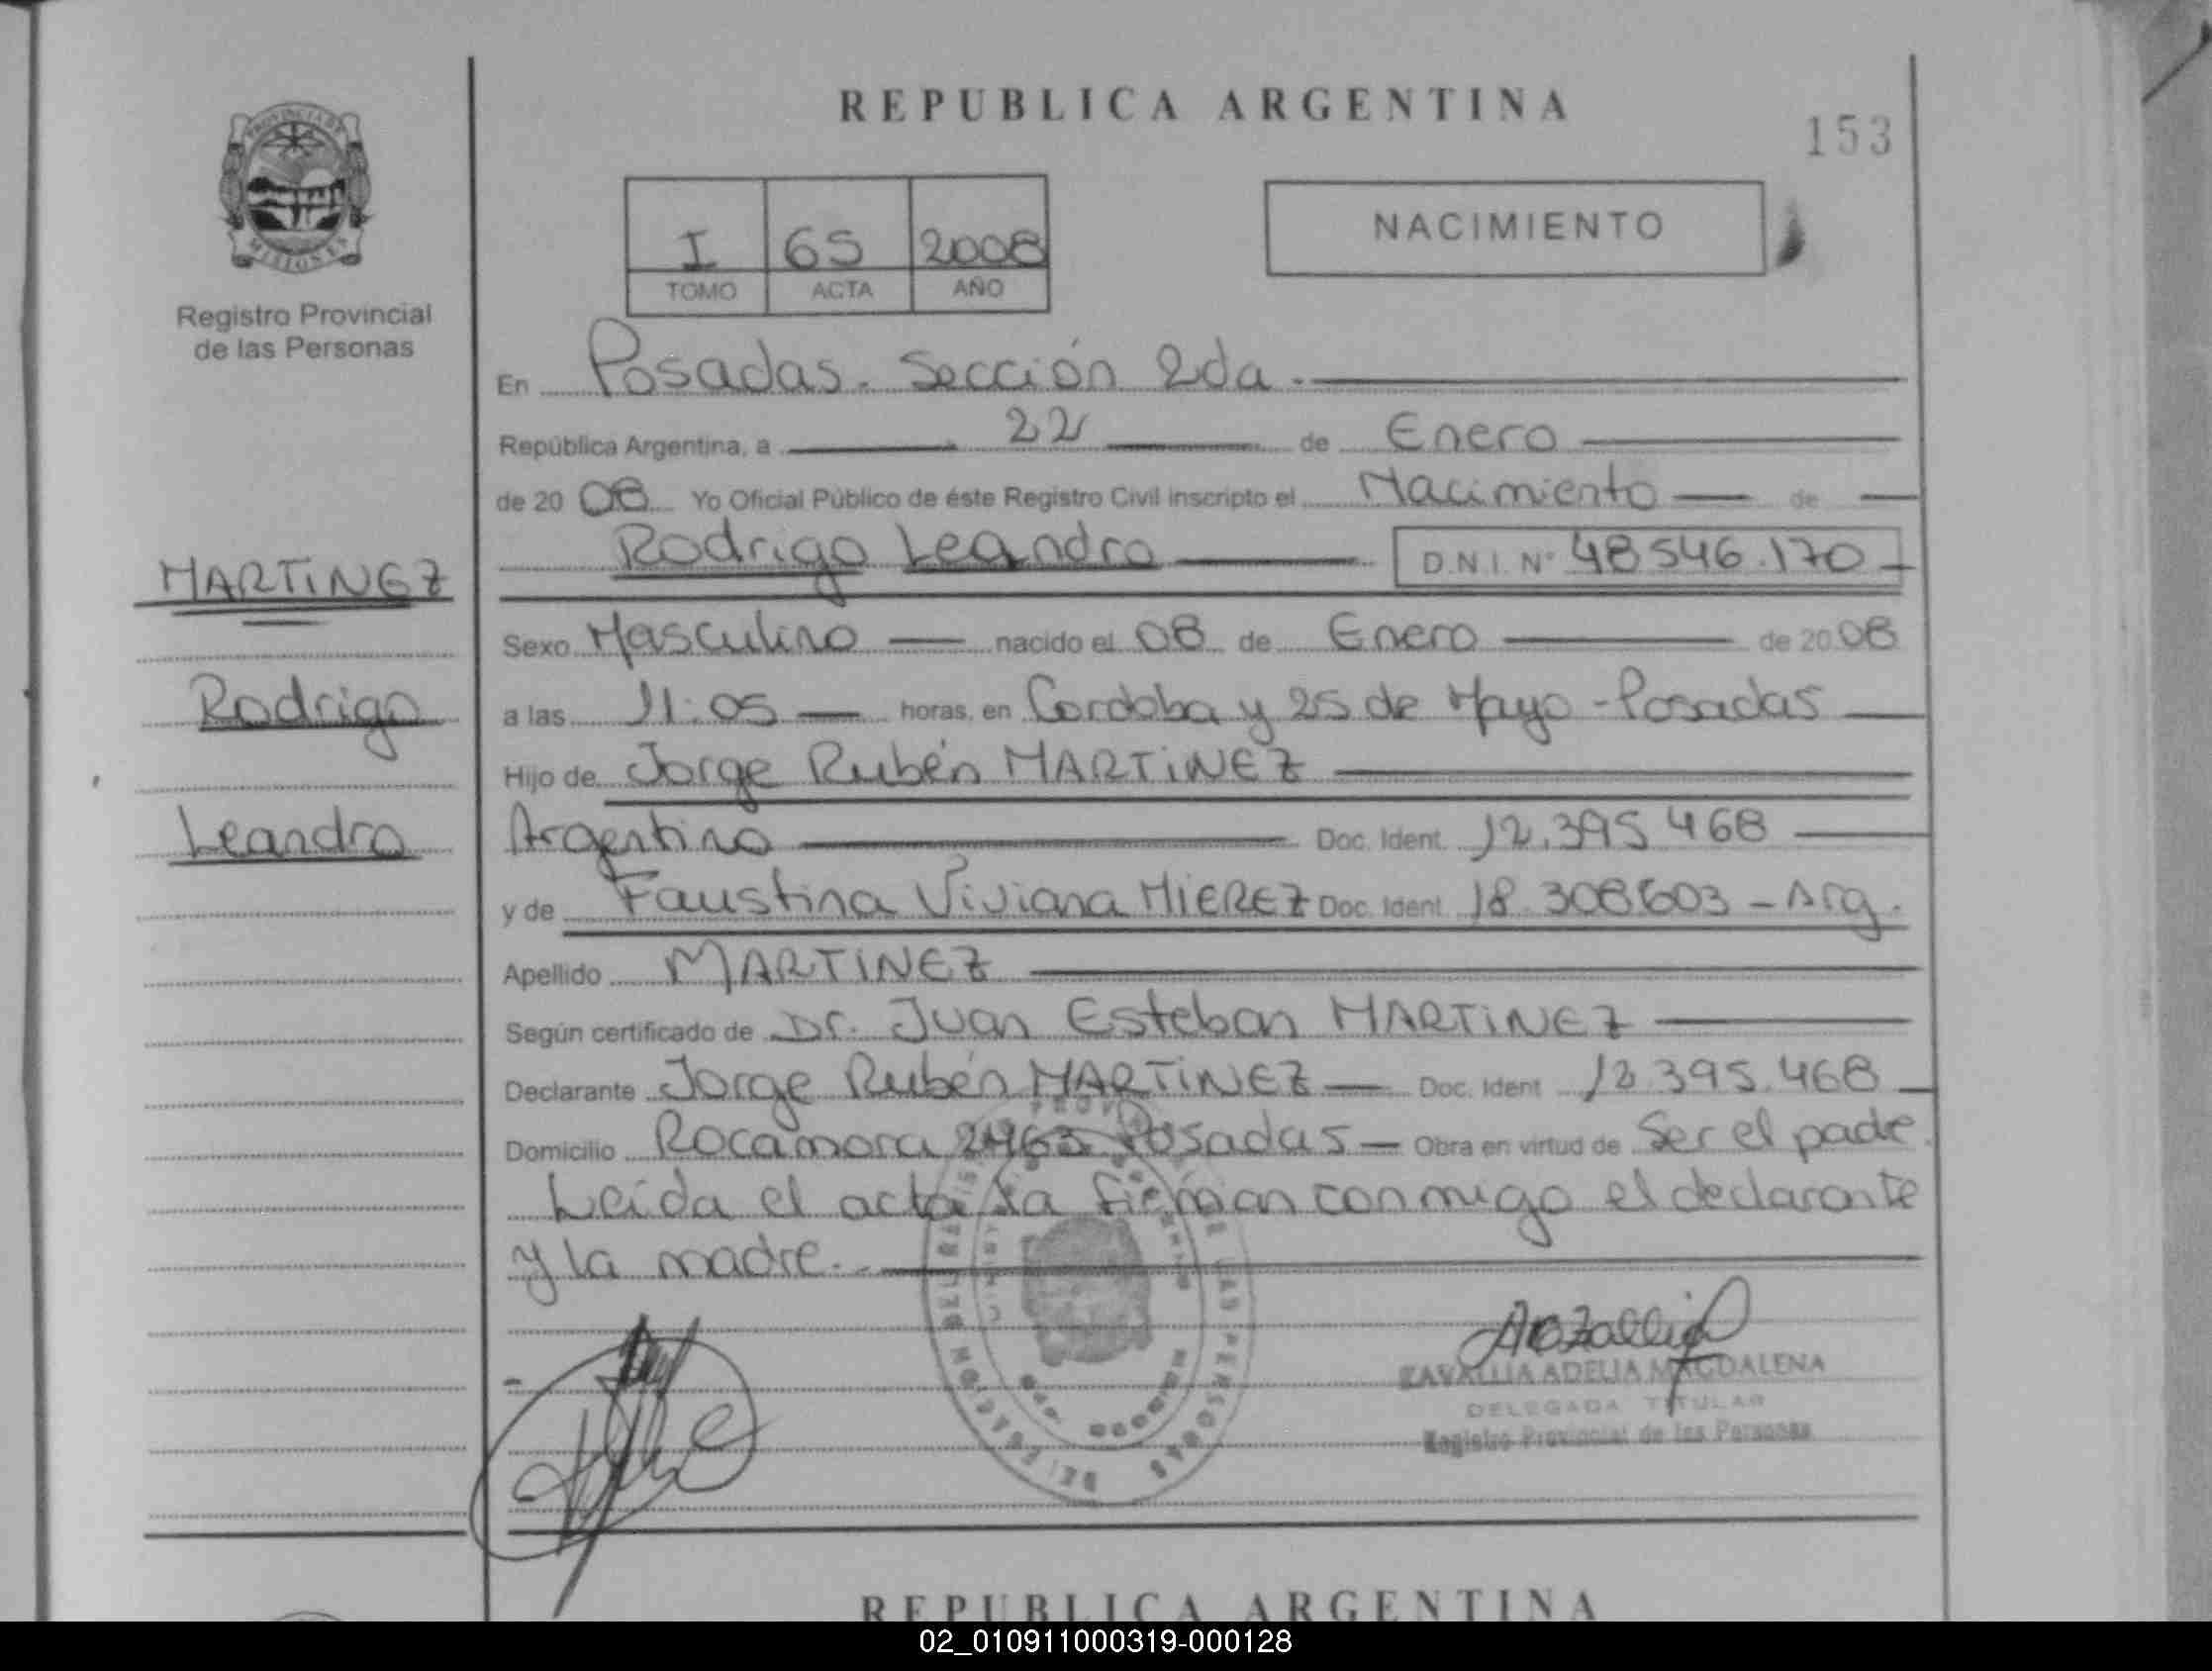 REPUBLICA ARGENTINA
153
PROVINCIA DE
MISIONES
Registro Provincial
de las Personas
I 65 2008
TOMO ACTA AÑO
NACIMIENTO
En Posadas. Sección 2da.
República Argentina, a 22 de Enero
de 2008 Yo Oficial Público de éste Registro Civil inscripto el Nacimiento de
Rodrigo Leandro D.N.I. Nº 48546.170
MARTINEZ
Rodrigo
Leandro
Sexo Masculino nacido el 08 de Enero de 2008
a las 11:05 horas, en Cordoba y 25 de Mayo - Posadas
Hijo de Jorge Rubén MARTINEZ
Argentino Doc. Ident. 12.395 468
y de Faustina Viviana MIEREZ Doc. Ident. 18.308603 - Arg.
Apellido MARTINEZ
Según certificado de Dr. Juan Esteban MARTINEZ
Declarante Jorge Rubén MARTINEZ Doc. Ident 12.395.468
Domicilio Rocamora 2463 Posadas Obra en virtud de Ser el padre.
Leída el acta la firman conmigo el declarante
y la madre.
ZAVALLIA ADELIA MAGDALENA
DELEGADA TITULAR
Registro Provincial de las Personas
REPUBLICA ARGENTINA
02_010911000319-000128